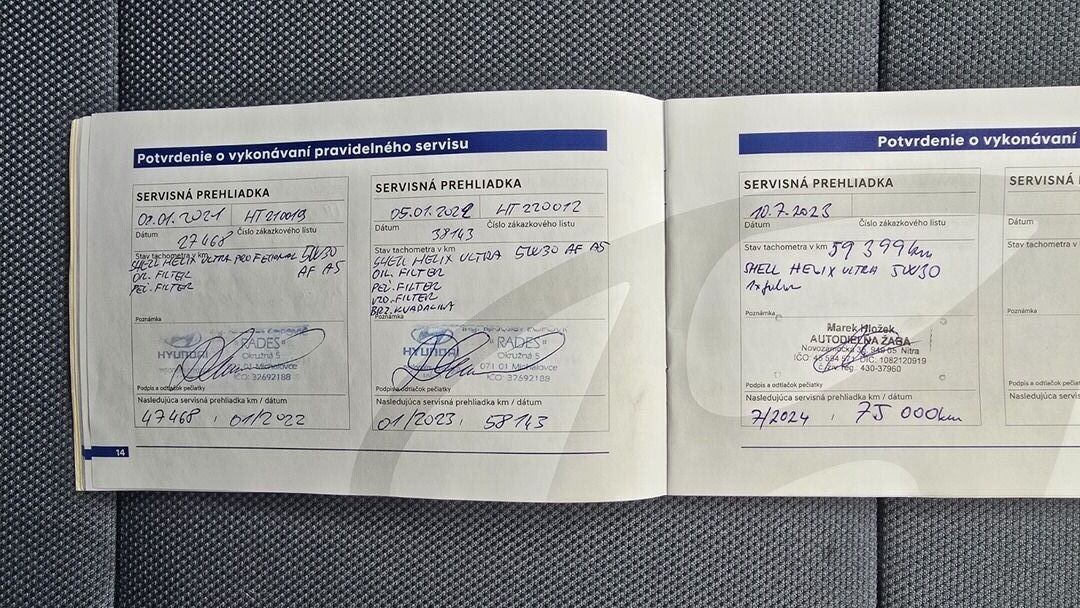 Potvrdenie o vykonávaní pravidelného servisu
SERVISNÁ PREHLIADKA
01.2021 HT210019
Dátum Číslo zákazkového listu
27468
Stav tachometra v km
SHELL HELIX ULTRA PROFESIONAL 5W30
OIL. FILTER AF A5
PEĽ. FILTER
Poznámka
HYUNDAI
RADES
Okružná 5
071 01 Michalovce
IČO: 32692188
Podpis a odtlačok pečiatky
Nasledujúca servisná prehliadka km / dátum
47468 , 01/2022
SERVISNÁ PREHLIADKA
05.01.2022 HT 220012
Dátum Číslo zákazkového listu
38143
Stav tachometra v km
SHELL HELIX ULTRA 5W30 AF A5
OIL. FILTER
PEĽ. FILTER
VZD. FILTER
BRZ. KVAPALINA
Poznámka
HYUNDAI
RADES
Okružná 5
071 01 Michalovce
IČO: 32692188
Podpis a odtlačok pečiatky
Nasledujúca servisná prehliadka km / dátum
01/2023 , 58143
14
Potvrdenie o vykonávaní
SERVISNÁ PREHLIADKA
10.7.2023
Dátum Číslo zákazkového listu
Stav tachometra v km 59 399km
SHELL HELIX ULTRA 5W30
1x
Poznámka
Marek Hložek
AUTODIELŇA ŽABA
Novozámocká 949 05 Nitra
IČO: DIČ: 1082120919
č. živ. reg. 430-37960
Podpis a odtlačok pečiatky
Nasledujúca servisná prehliadka km / dátum
7/2024 , 75 000km
SERVISNÁ
Dátum
Stav tachometra v
Poznámka
Podpis a odtlačok
Nasledujúca servis